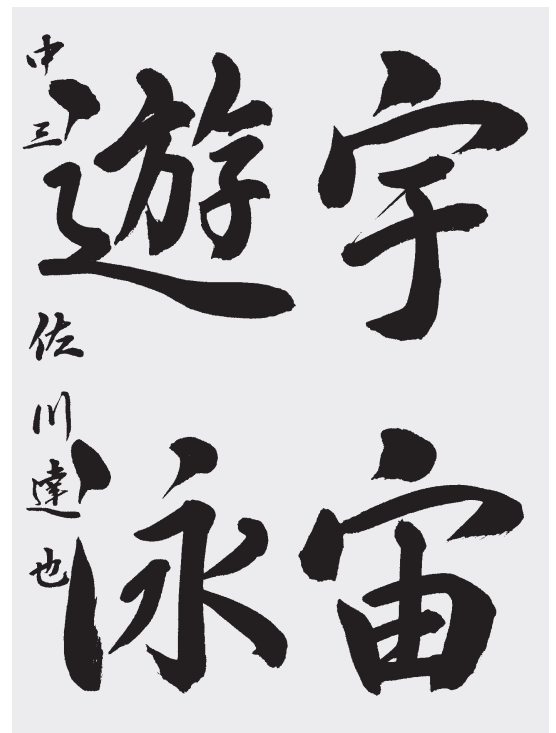 宇宙
遊泳
中三 佐川達也